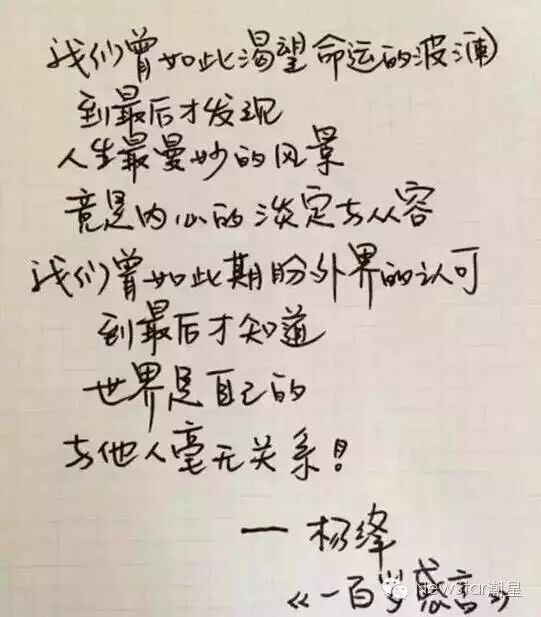 我们曾如此渴望命运的波澜
到最后才发现
人生最曼妙的风景
竟是内心的淡定与从容
我们曾如此期盼外界的认可
到最后才知道
世界是自己的
与他人毫无关系!
— 杨绛
《一百岁感言》
NewStar潮星